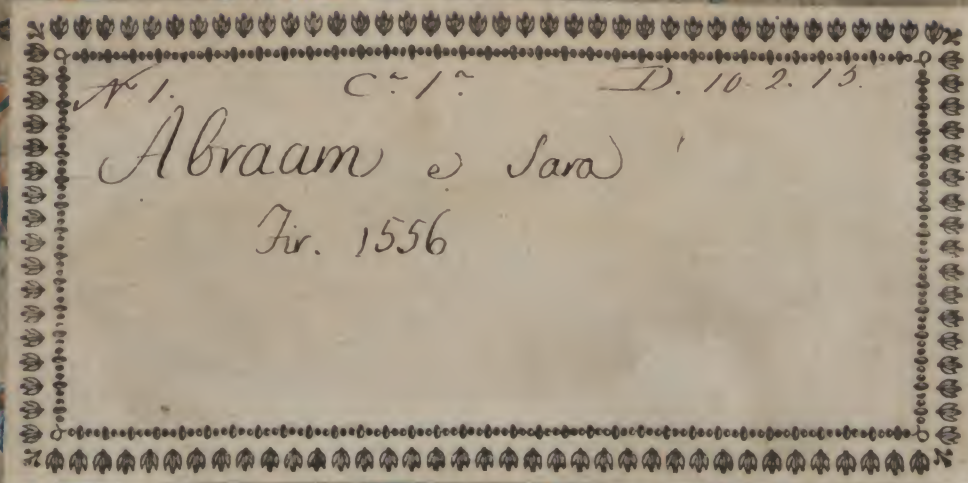 N 1. C.a 1.a D. 10. 2. 13.
Abraam e Sara
Fir. 1556